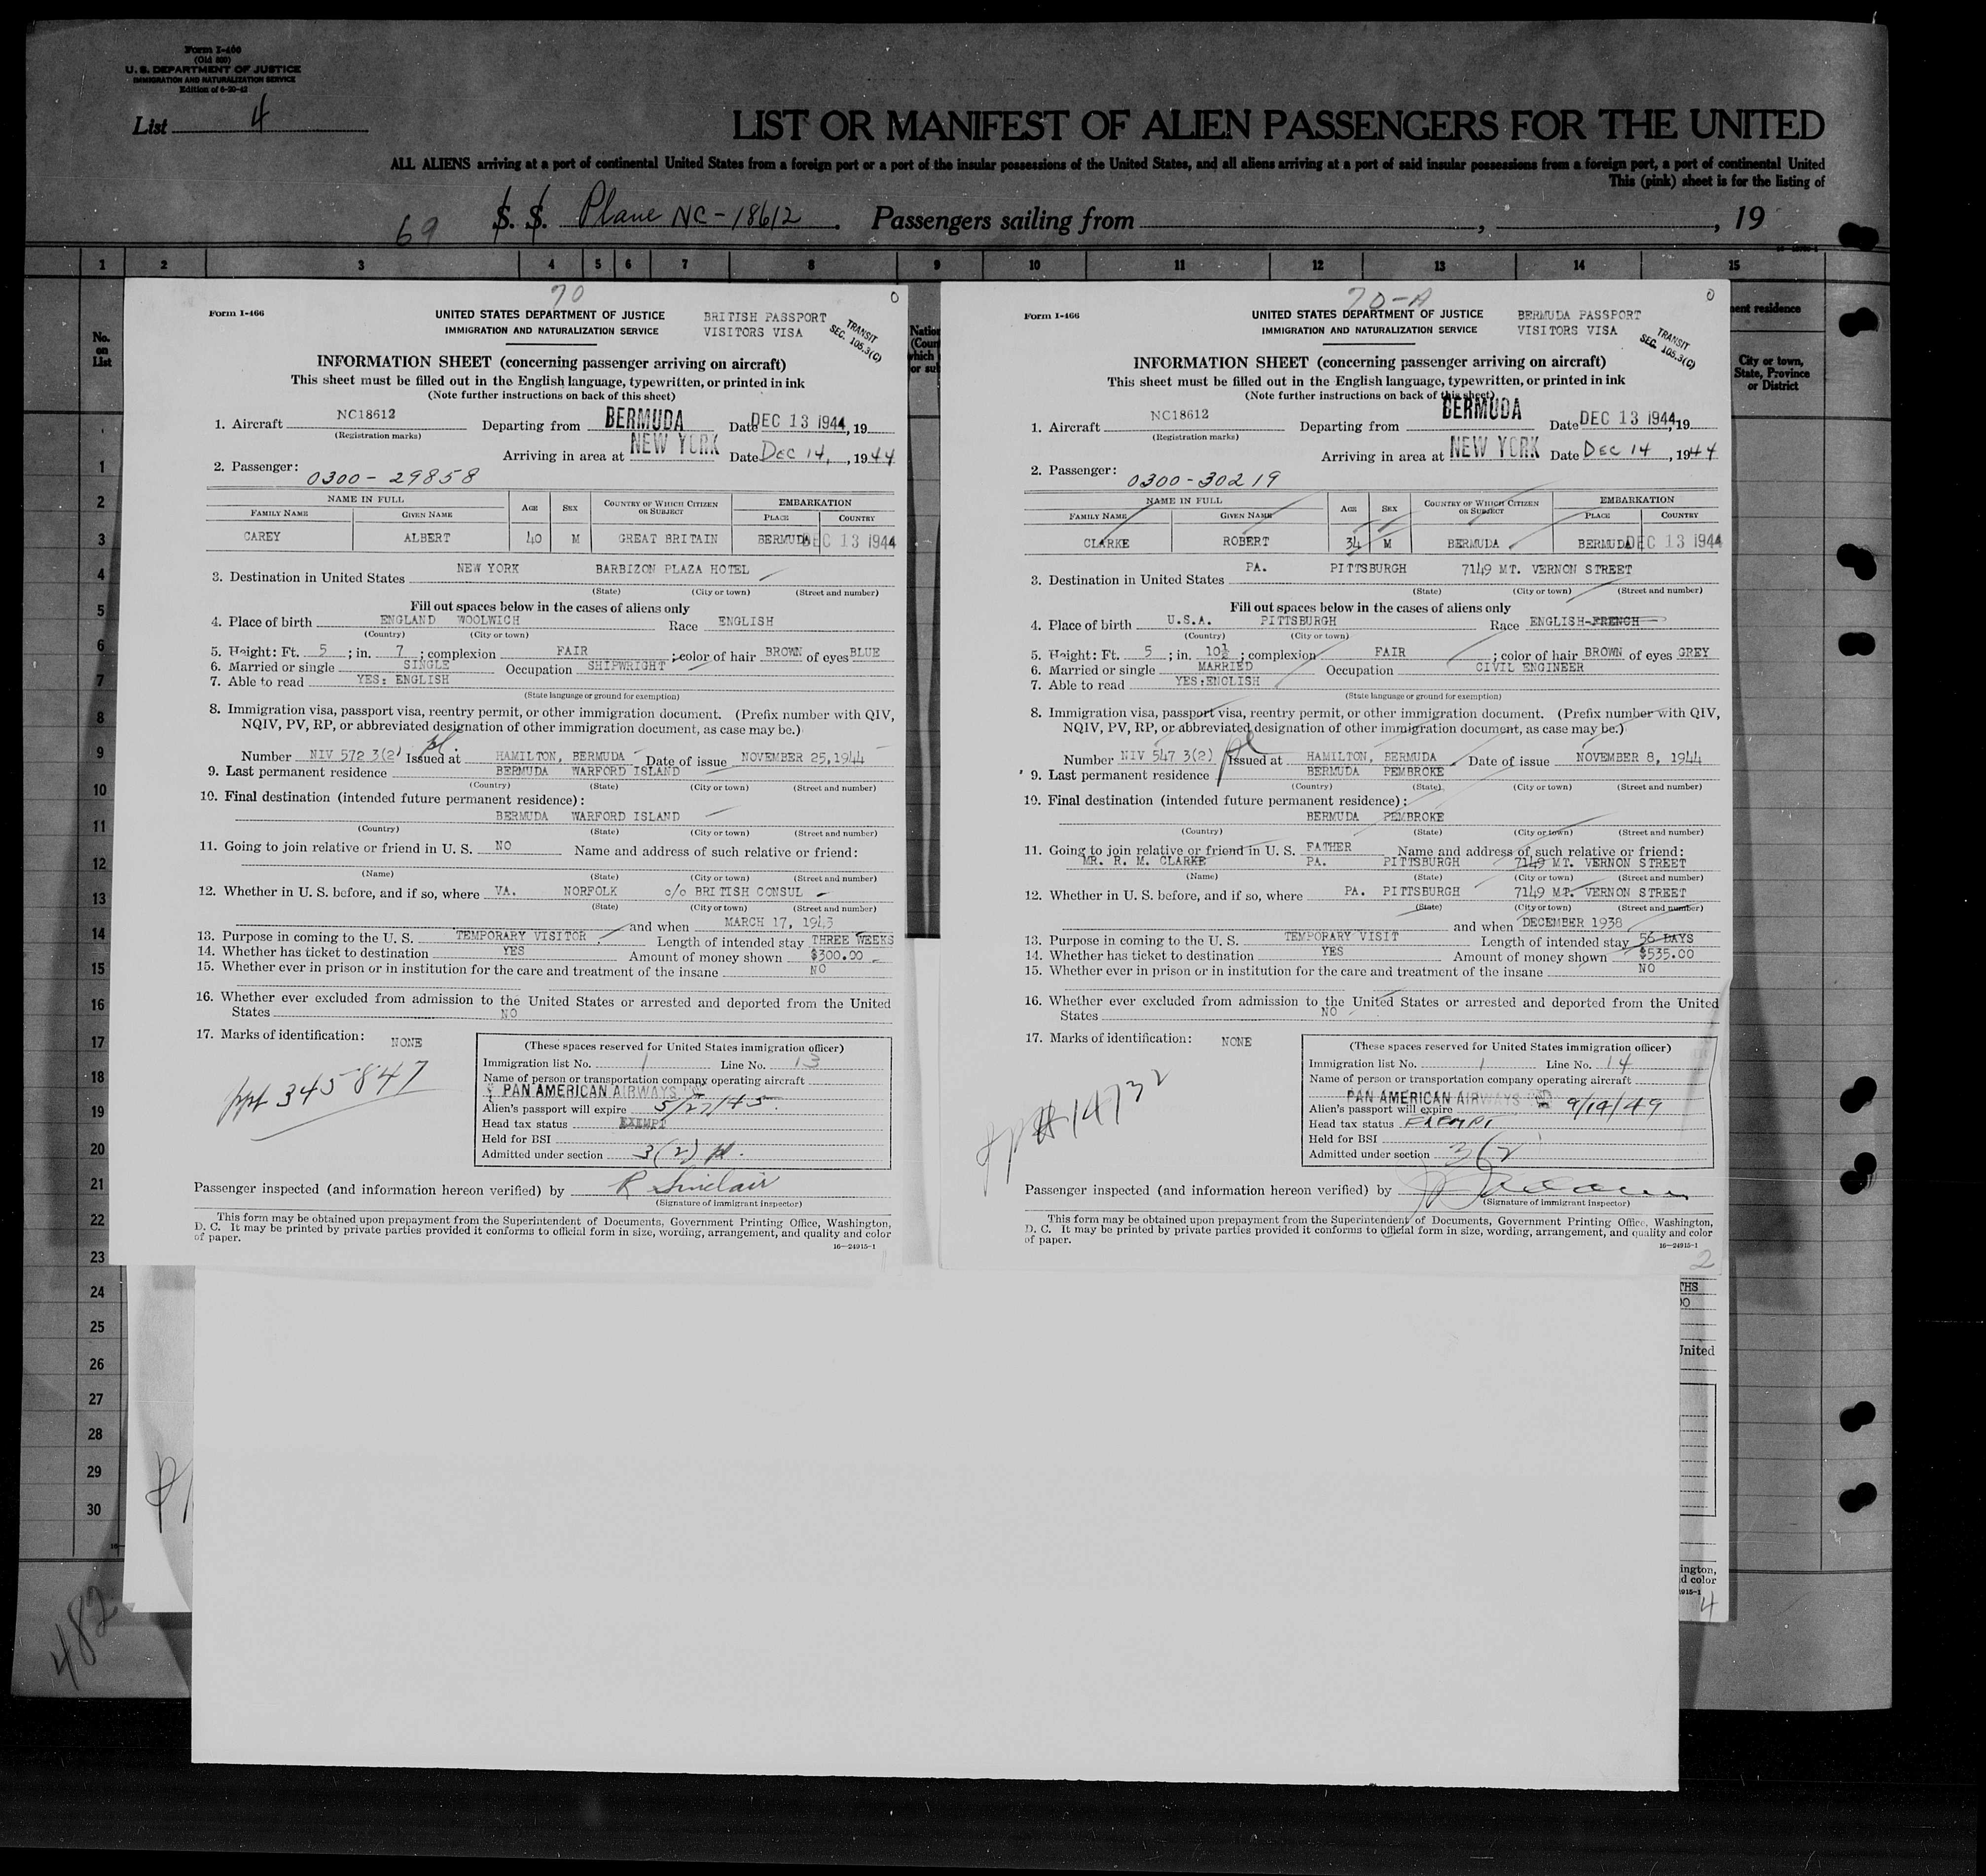 Form I-466
(Old 500)
U. S. DEPARTMENT OF JUSTICE
IMMIGRATION AND NATURALIZATION SERVICE
Edition of 6-20-42
List 4
LIST OR MANIFEST OF ALIEN PASSENGERS FOR THE UNITED
ALL ALIENS arriving at a port of continental United States from a foreign port or a port of the insular possessions of the United States, and all aliens arriving at a port of said insular possessions from a foreign port, a port of continental United
This (pink) sheet is for the listing of
69 S. S. Plane NC-18612. Passengers sailing from , , 19
1 2 3 4 5 6 7 8 9 10 11 12 13 14 15
No. on List
ment residence
City or town, State, Province or District
70 0
Form I-466
UNITED STATES DEPARTMENT OF JUSTICE
IMMIGRATION AND NATURALIZATION SERVICE
BRITISH PASSPORT
VISITORS VISA
TRANSIT
SEC. 105.3(C)
INFORMATION SHEET (concerning passenger arriving on aircraft)
This sheet must be filled out in the English language, typewritten, or printed in ink
(Note further instructions on back of this sheet)
1. Aircraft NC18612 Departing from BERMUDA Date DEC 13 1944, 19
(Registration marks)
Arriving in area at NEW YORK Date DEC 14, , 1944
2. Passenger: 0300-29858
NAME IN FULL AGE SEX COUNTRY OF WHICH CITIZEN OR SUBJECT EMBARKATION
FAMILY NAME GIVEN NAME PLACE COUNTRY
CAREY ALBERT 40 M GREAT BRITAIN BERMUDA DEC 13 1944
3. Destination in United States NEW YORK BARBIZON PLAZA HOTEL
(State) (City or town) (Street and number)
Fill out spaces below in the cases of aliens only
4. Place of birth ENGLAND WOOLWICH Race ENGLISH
(Country) (City or town)
5. Height: Ft. 5 ; in. 7 ; complexion FAIR ; color of hair BROWN of eyes BLUE
6. Married or single SINGLE Occupation SHIPWRIGHT
7. Able to read YES: ENGLISH
(State language or ground for exemption)
8. Immigration visa, passport visa, reentry permit, or other immigration document. (Prefix number with QIV,
NQIV, PV, RP, or abbreviated designation of other immigration document, as case may be.)
Number NIV 572 3(2) Issued at HAMILTON, BERMUDA Date of issue NOVEMBER 25,1944
9. Last permanent residence BERMUDA WARFORD ISLAND
(Country) (State) (City or town) (Street and number)
10. Final destination (intended future permanent residence):
BERMUDA WARFORD ISLAND
(Country) (State) (City or town) (Street and number)
11. Going to join relative or friend in U. S. NO Name and address of such relative or friend:
(Name) (State) (City or town) (Street and number)
12. Whether in U. S. before, and if so, where VA. NORFOLK c/o BRITISH CONSUL
(State) (City or town) (Street and number)
and when MARCH 17, 1943
13. Purpose in coming to the U. S. TEMPORARY VISITOR Length of intended stay THREE WEEKS
14. Whether has ticket to destination YES Amount of money shown $300.00
15. Whether ever in prison or in institution for the care and treatment of the insane NO
16. Whether ever excluded from admission to the United States or arrested and deported from the United
States NO
17. Marks of identification: NONE
ppt 345847
(These spaces reserved for United States immigration officer)
Immigration list No. 1 Line No. 13
Name of person or transportation company operating aircraft
PAN AMERICAN AIRWAYS
Alien's passport will expire 5/27/45.
Head tax status EXEMPT
Held for BSI
Admitted under section 3(2)
Passenger inspected (and information hereon verified) by R Sinclair
(Signature of immigrant inspector)
This form may be obtained upon prepayment from the Superintendent of Documents, Government Printing Office, Washington,
D. C. It may be printed by private parties provided it conforms to official form in size, wording, arrangement, and quality and color
of paper.
16—24915-1
70-A 0
Form I-466
UNITED STATES DEPARTMENT OF JUSTICE
IMMIGRATION AND NATURALIZATION SERVICE
BERMUDA PASSPORT
VISITORS VISA
TRANSIT
SEC. 105.3(C)
INFORMATION SHEET (concerning passenger arriving on aircraft)
This sheet must be filled out in the English language, typewritten, or printed in ink
(Note further instructions on back of this sheet)
1. Aircraft NC18612 Departing from BERMUDA Date DEC 13 1944, 19
(Registration marks)
Arriving in area at NEW YORK Date DEC 14 , 1944
2. Passenger: 0300-30219
NAME IN FULL AGE SEX COUNTRY OF WHICH CITIZEN OR SUBJECT EMBARKATION
FAMILY NAME GIVEN NAME PLACE COUNTRY
CLARKE ROBERT 34 M BERMUDA BERMUDA DEC 13 1944
3. Destination in United States PA. PITTSBURGH 7149 MT. VERNON STREET
(State) (City or town) (Street and number)
Fill out spaces below in the cases of aliens only
4. Place of birth U.S.A. PITTSBURGH Race ENGLISH-FRENCH
(Country) (City or town)
5. Height: Ft. 5 ; in. 10½ ; complexion FAIR ; color of hair BROWN of eyes GREY
6. Married or single MARRIED Occupation CIVIL ENGINEER
7. Able to read YES:ENGLISH
(State language or ground for exemption)
8. Immigration visa, passport visa, reentry permit, or other immigration document. (Prefix number with QIV,
NQIV, PV, RP, or abbreviated designation of other immigration document, as case may be.)
Number NIV 547 3(2) Issued at HAMILTON, BERMUDA Date of issue NOVEMBER 8, 1944
9. Last permanent residence BERMUDA PEMBROKE
(Country) (State) (City or town) (Street and number)
10. Final destination (intended future permanent residence):
BERMUDA PEMBROKE
(Country) (State) (City or town) (Street and number)
11. Going to join relative or friend in U. S. FATHER Name and address of such relative or friend:
MR. R. M. CLARKE PA. PITTSBURGH 7149 MT. VERNON STREET
(Name) (State) (City or town) (Street and number)
12. Whether in U. S. before, and if so, where PA. PITTSBURGH 7149 MT. VERNON STREET
(State) (City or town) (Street and number)
and when DECEMBER 1938
13. Purpose in coming to the U. S. TEMPORARY VISIT Length of intended stay 56 DAYS
14. Whether has ticket to destination YES Amount of money shown $535.00
15. Whether ever in prison or in institution for the care and treatment of the insane NO
16. Whether ever excluded from admission to the United States or arrested and deported from the United
States NO
17. Marks of identification: NONE
(These spaces reserved for United States immigration officer)
Immigration list No. 1 Line No. 14
Name of person or transportation company operating aircraft
PAN AMERICAN AIRWAYS
Alien's passport will expire 9/14/49
Head tax status EXEMPT
Held for BSI
Admitted under section 3(2
Passenger inspected (and information hereon verified) by
(Signature of immigrant inspector)
This form may be obtained upon prepayment from the Superintendent of Documents, Government Printing Office, Washington,
D. C. It may be printed by private parties provided it conforms to official form in size, wording, arrangement, and quality and color
of paper.
16—24915-1
2
1
2
3
4
5
6
7
8
9
10
11
12
13
14
15
16
17
18
19
20
21
22
23
24
25
26
27
28
29
30
THS
United
ington,
d color
915-1
4
482